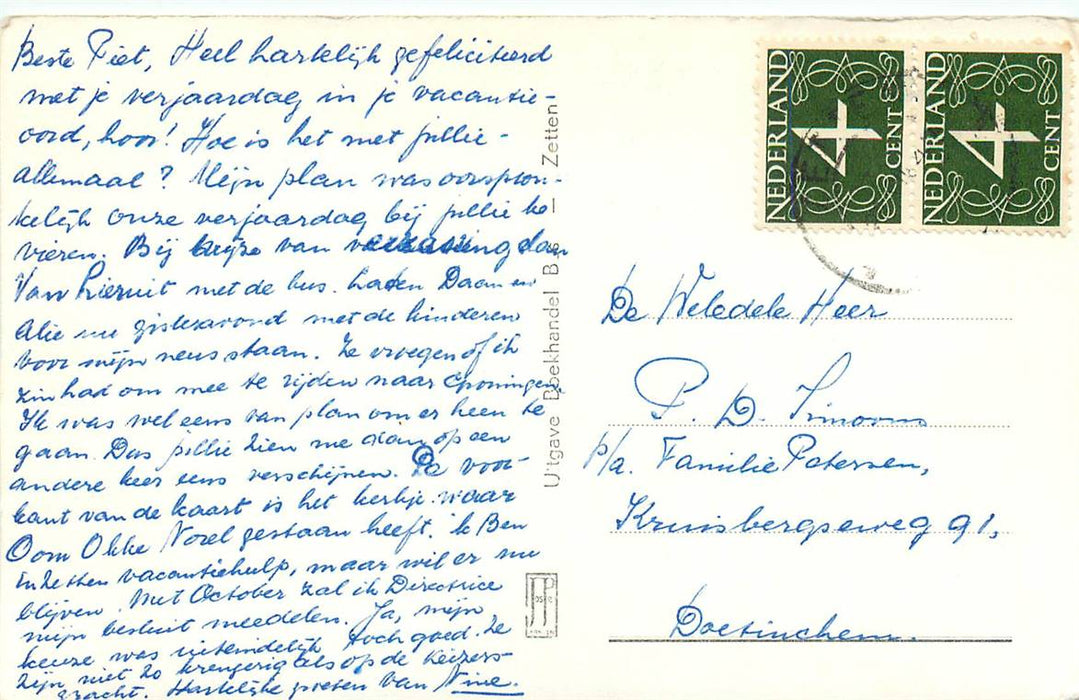 Beste Piet, Heel hartelijk gefeliciteerd
met je verjaardag in je vacantie-
oord, hoor! Hoe is het met jullie
allemaal? Mijn plan was oorspron-
kelijk onze verjaardag bij jullie te
vieren. Bij wijze van verrassing dan
Van hieruit met de bus. hadden Daan en
Alie me gisteravond met de kinderen
voor mijn neus staan. Ze vroegen of ik
zin had om mee te rijden naar Groningen
Ik was wel eens van plan om er heen te
gaan. Dus jullie zien me dan op een
andere keer eens verschijnen. De voor-
kant van de kaart is het kerkje waar
Oom Okke Norel gestaan heeft. ik Ben
in Zetten vacantiehulp, maar wil er nu
blijven. Met October zal ik Directrice
mijn besluit meedelen. Ja, mijn
keuze was uiteindelijk toch goed. Ze
zijn niet zo krengerig als op de Keizers-
gracht. Hartelijke groeten van Nine.
Uitgave Boekhandel — Zetten
NEDERLAND
4
CENT
NEDERLAND
4
CENT
De Weledele Heer
P. D. Simons
p/a. Familie Petersen,
Kruisbergseweg 91,
Doetinchem.
JP